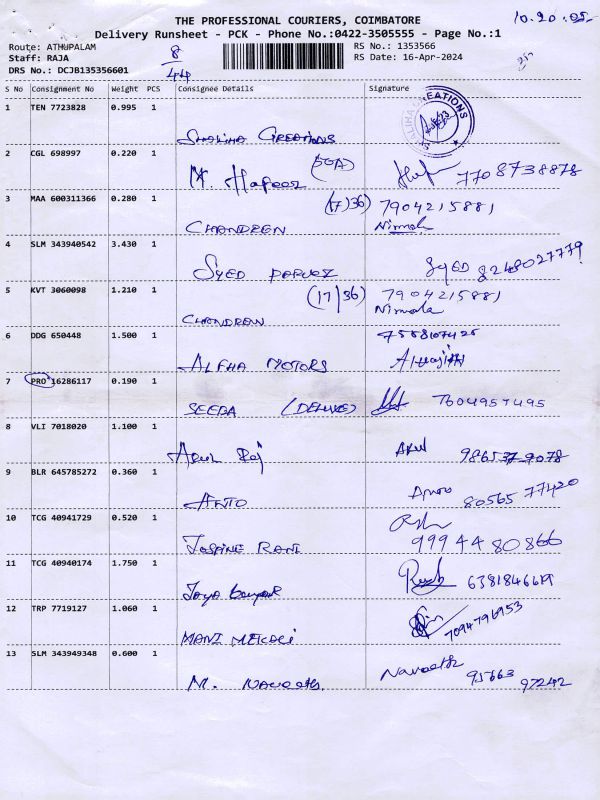 THE PROFESSIONAL COURIERS, COIMBATORE
10.20.05.
Delivery Runsheet - PCK - Phone No.:0422-3505555 - Page No.:1
Route: ATHUPALAM 8 RS No.: 1353566
Staff: RAJA 44 RS Date: 16-Apr-2024
DRS No.: DCJB135356601
S No Consignment No Weight PCS Consignee Details Signature
1 TEN 7723828 0.995 1
CREATIONS
2 CGL 698997 0.220 1
M. Hafeez 7708738878
3 MAA 600311366 0.280 1 (17)36) 7904215881
CHANDREN Nirmala
4 SLM 343940542 3.430 1
SYED PARVEZ Syed 8248027779
5 KVT 3060098 1.210 1 (17/36) 7904215881
CHANDREN Nirmala
6 DDG 650448 1.500 1 7558107425
ALFHA MOTORS
7 PRO 16286117 0.190 1
SEEDA (DELUXE) 7604957495
8 VLI 7018020 1.100 1
Arul Raj Arul 98653 79078
9 BLR 645785272 0.360 1
ANTO Anto 80565 77420
10 TCG 40941729 0.520 1
RANI 99944 80866
11 TCG 40940174 1.750 1
Jaya 6381846619
12 TRP 7719127 1.060 1
MANI MEKALI 7094796953
13 SLM 343949348 0.600 1
M. Navneeth. Navneeth 95663 97242